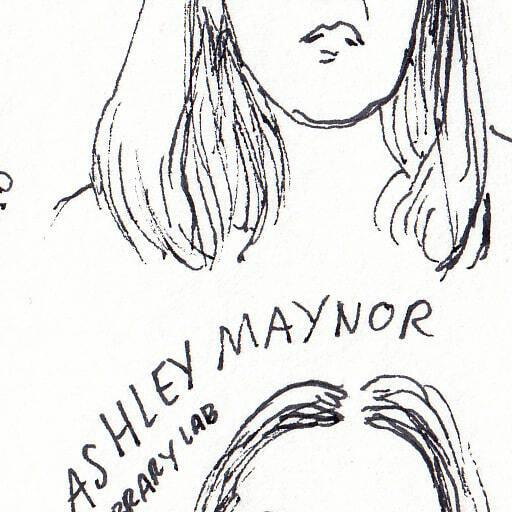 ASHLEY MAYNOR
BRARY LAB